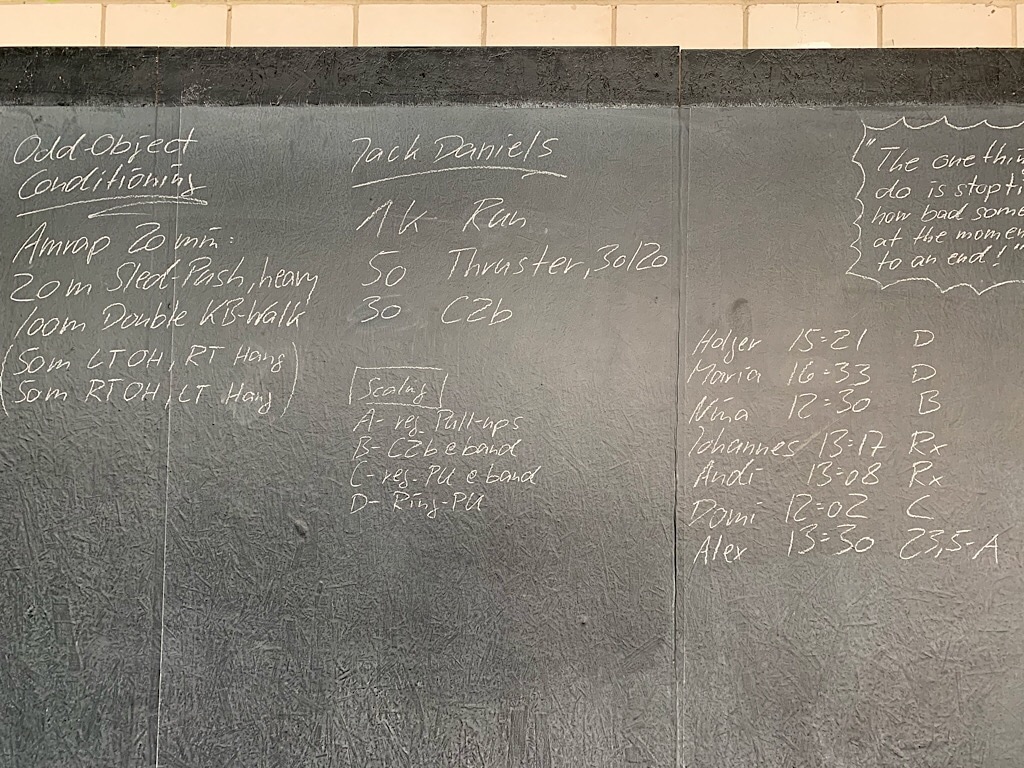 Odd-Object
Conditioning
Amrap 20 min:
20m Sled-Push, heavy
100m Double KB-Walk
(50m LT OH, RT Hang)
(50m RT OH, LT Hang)
Jack Daniels
1k Run
50 Thruster, 30/20
30 C2b
Scaling
A- reg. Pull-ups
B- C2b @ band
C- reg. PU @ band
D- Ring-PU
"The one thin
do is stop ti
how bad some
at the momen
to an end!"
Holger 15:21 D
Maria 16:33 D
Nina 12:30 B
Johannes 13:17 Rx
Andi 13:08 Rx
Domi 12:02 C
Alex 13:30 23,5-A